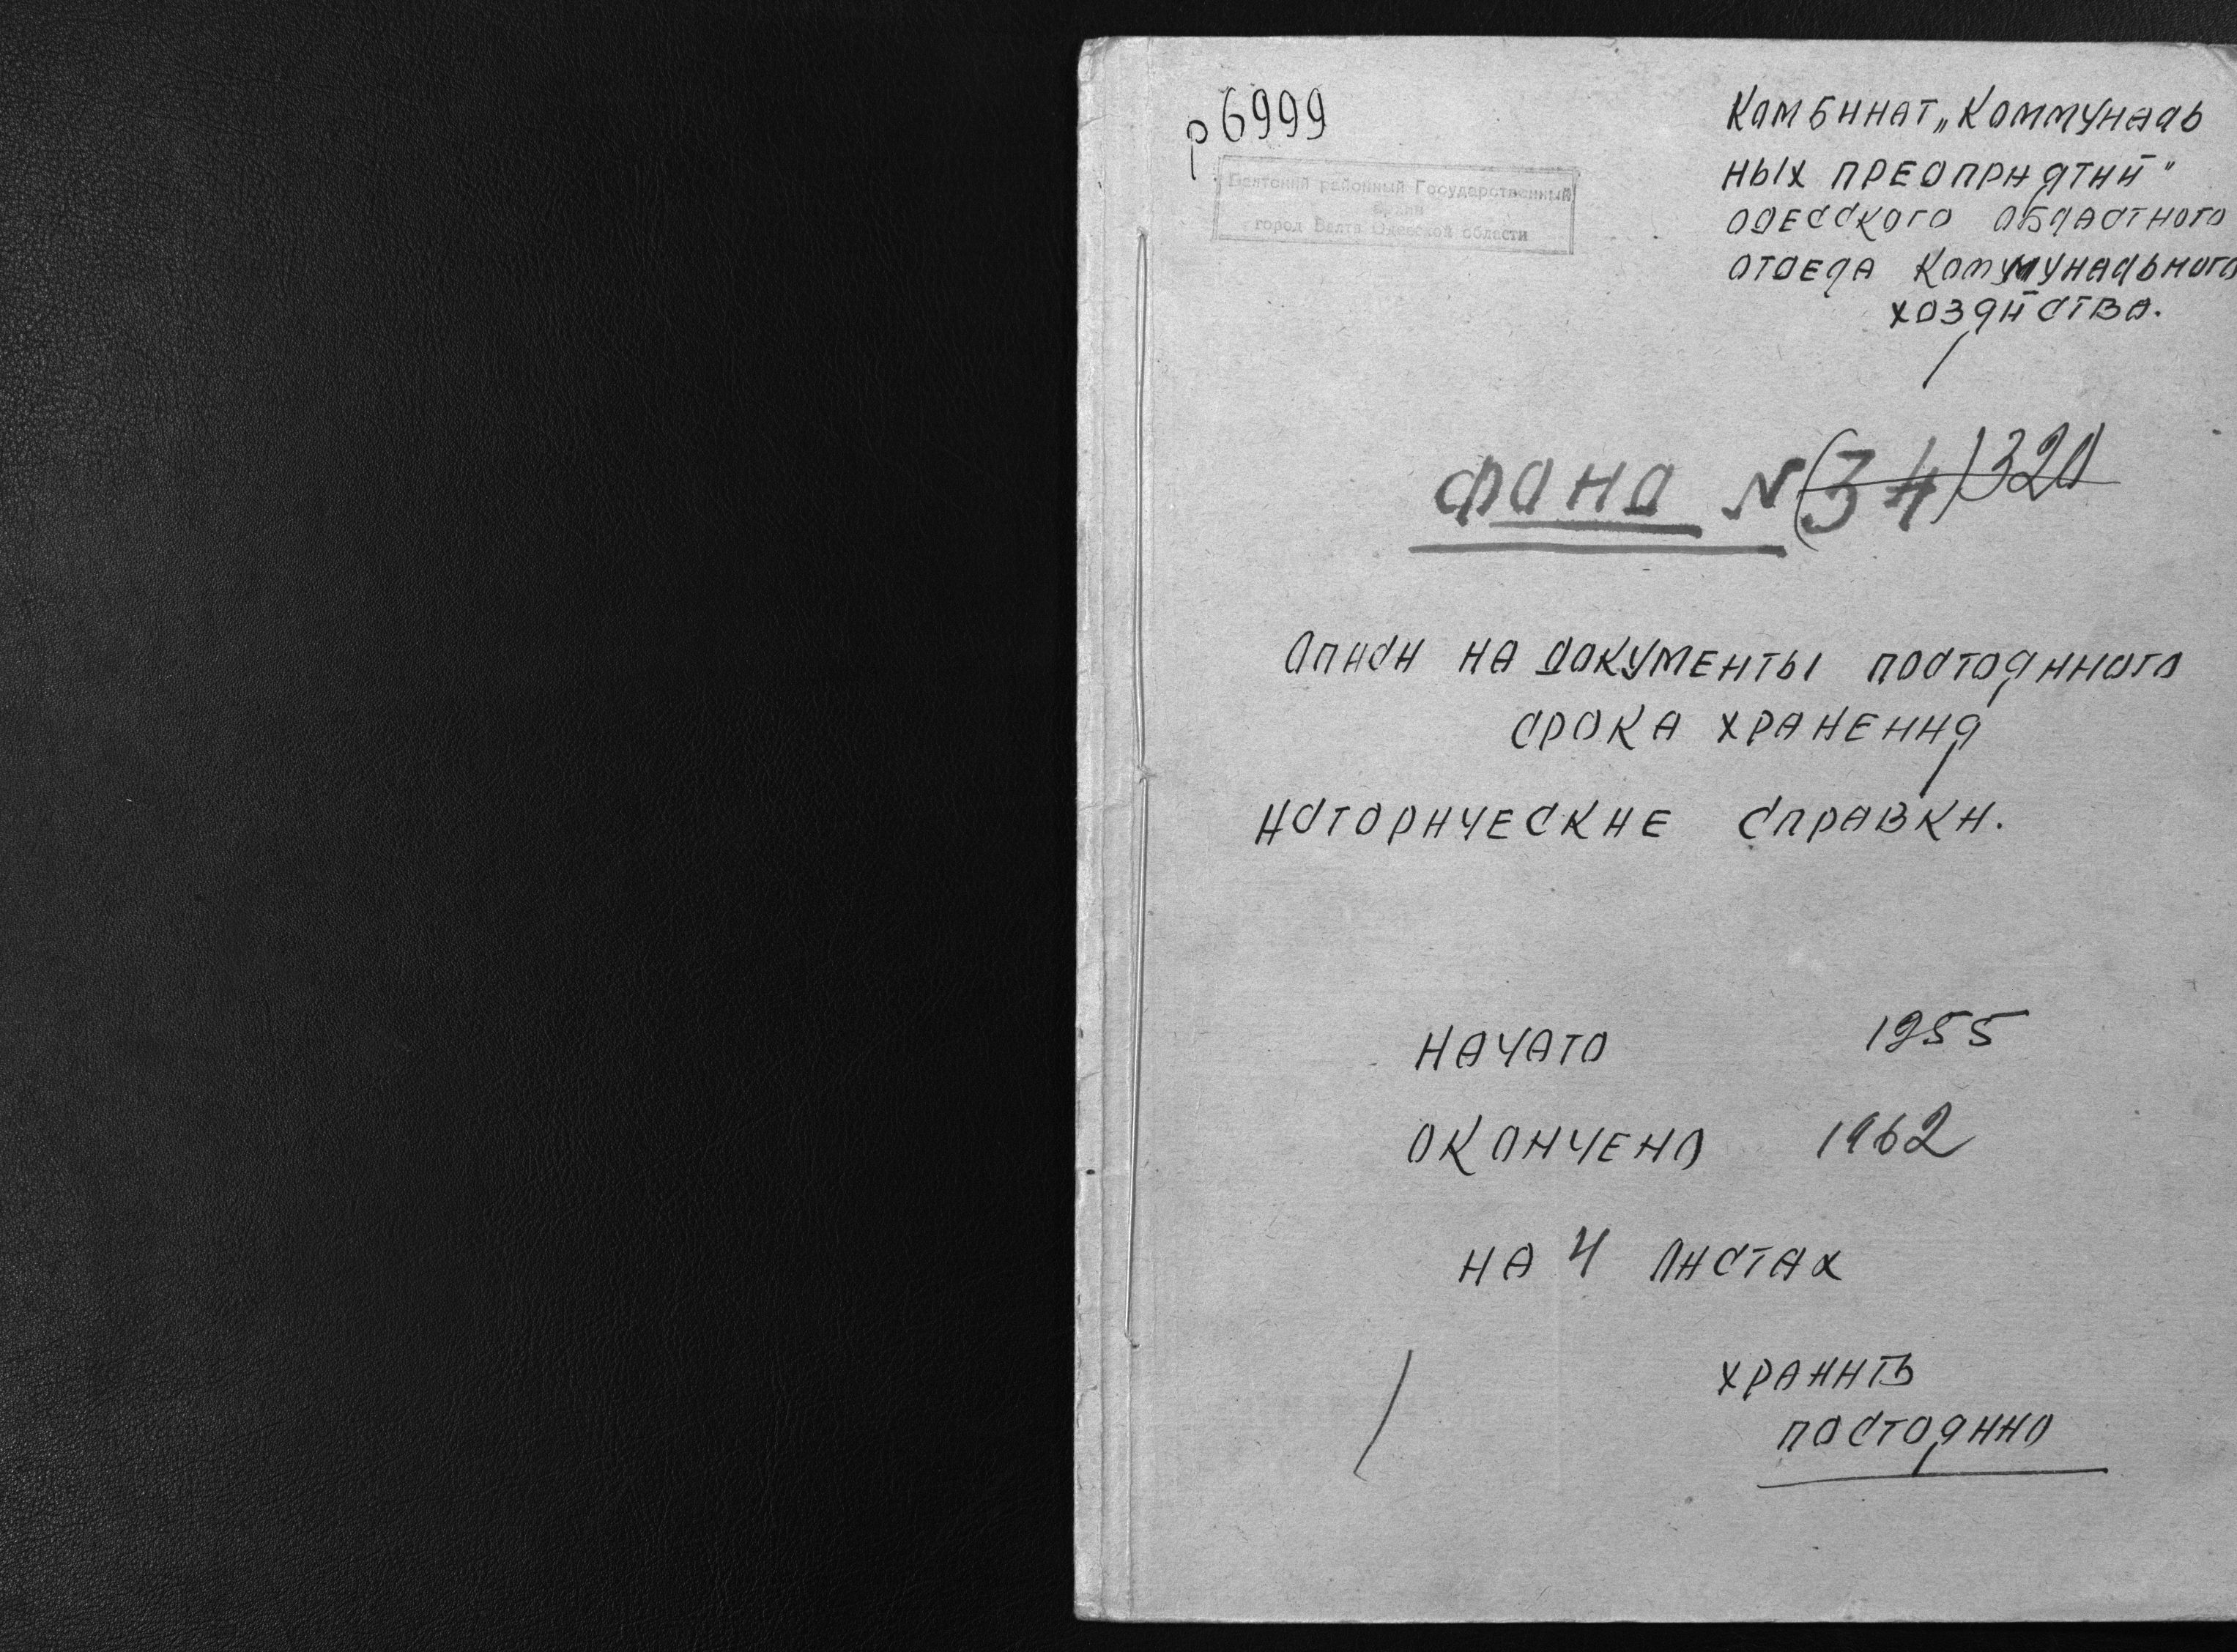 р6999
Балтский районный Государственный
архив
город Балта Одесской области
Комбинат „Коммуналь
ных предприятий"
Одесского областного
отдела коммунального
хозяйства.
Фонд N (34) 320
Описи на документы постоянного
срока хранения
Исторические справки.
Начато 1955
Окончено 1962
на 4 листах
хранить
постоянно